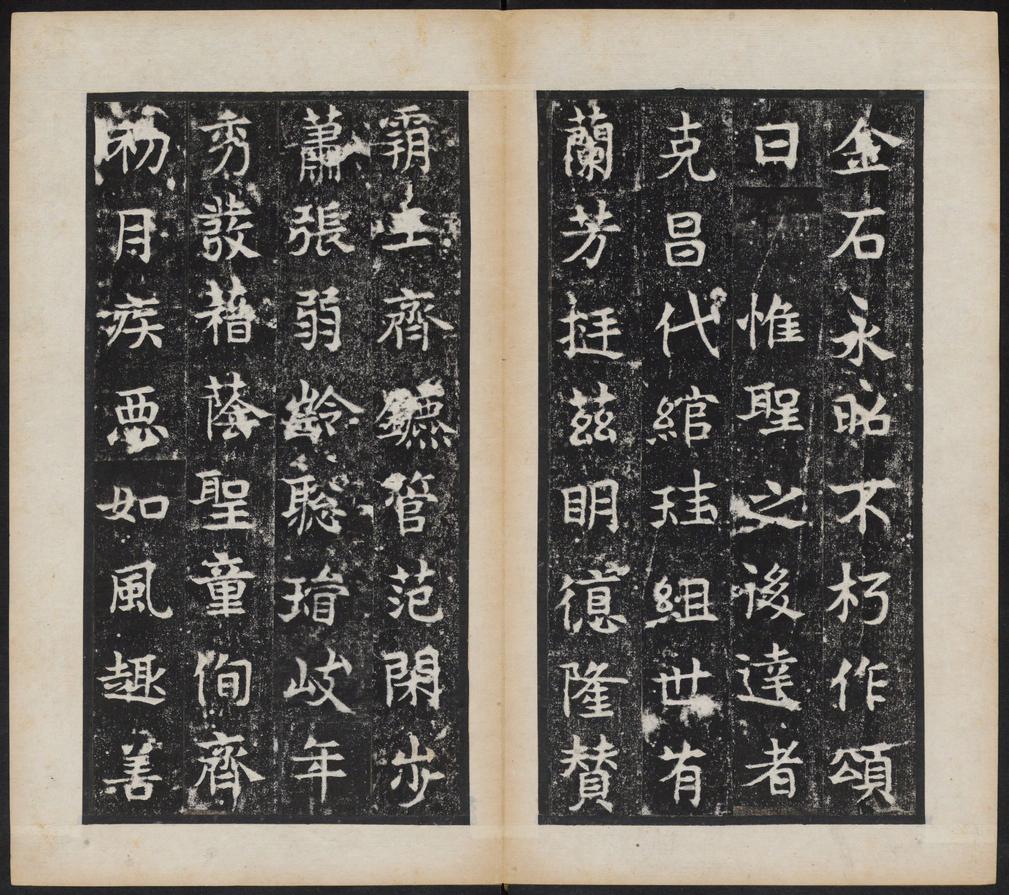 金石永昭不朽作頌
曰惟聖之後達者
克昌代綰珪組世有
蘭芳挺茲明德隆贊
霸土齊鑣管范閑步
蕭張弱齡聡瑋岐年
秀發藉蔭聖童侚齊
初月疾惡如風趣善